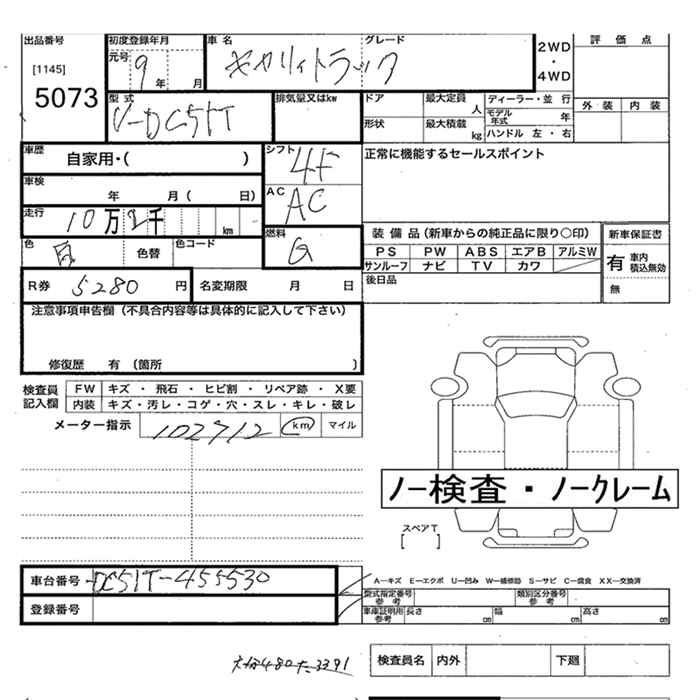 出品番号 初度登録年月 車名 グレード 2WD・4WD 評価点
[1145] 元号 9 年 月 キャリイトラック
5073 型式 V-DC51T 排気量又はkw ドア 最大定員 人 ディーラー・並行 外装 内装
形状 最大積載 kg モデル年式 年
ハンドル 左・右
車歴 自家用・( ) シフト 4F 正常に機能するセールスポイント
車検 年 月( 日) AC AC
走行 10万2千 km 燃料 G 装備品(新車からの純正品に限り○印) 新車保証書
色 白 色替 色コード PS PW ABS エアB アルミW 有 車内積込無効
サンルーフ ナビ TV カワ
R券 5280 円 名変期限 月 日 後日品 無
注意事項申告欄(不具合内容等は具体的に記入して下さい)
修復歴 有(箇所 )
検査員記入欄 FW キズ・飛石・ヒビ割・リペア跡・X要
内装 キズ・汚レ・コゲ・穴・スレ・キレ・破レ
メーター指示 102712 km マイル
ノー検査・ノークレーム
スペアT
[ ]
車台番号 DC51T-455530 A―キズ E―エクボ U―凹み W―補修跡 S―サビ C―腐食 XX―交換済
登録番号 型式指定番号 参考 類別区分番号 参考
車庫証明用参考 長さ cm 幅 cm 高さ cm
480た3391 検査員名 内外 下廻